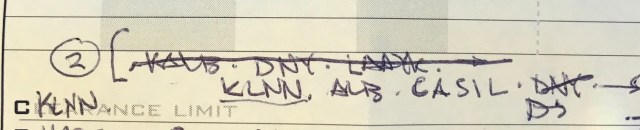 ② [KALB. DNY. LAAYK.
KLNN. ALB. CASIL. DNY →
C KLNN. RANCE LIMIT DJ